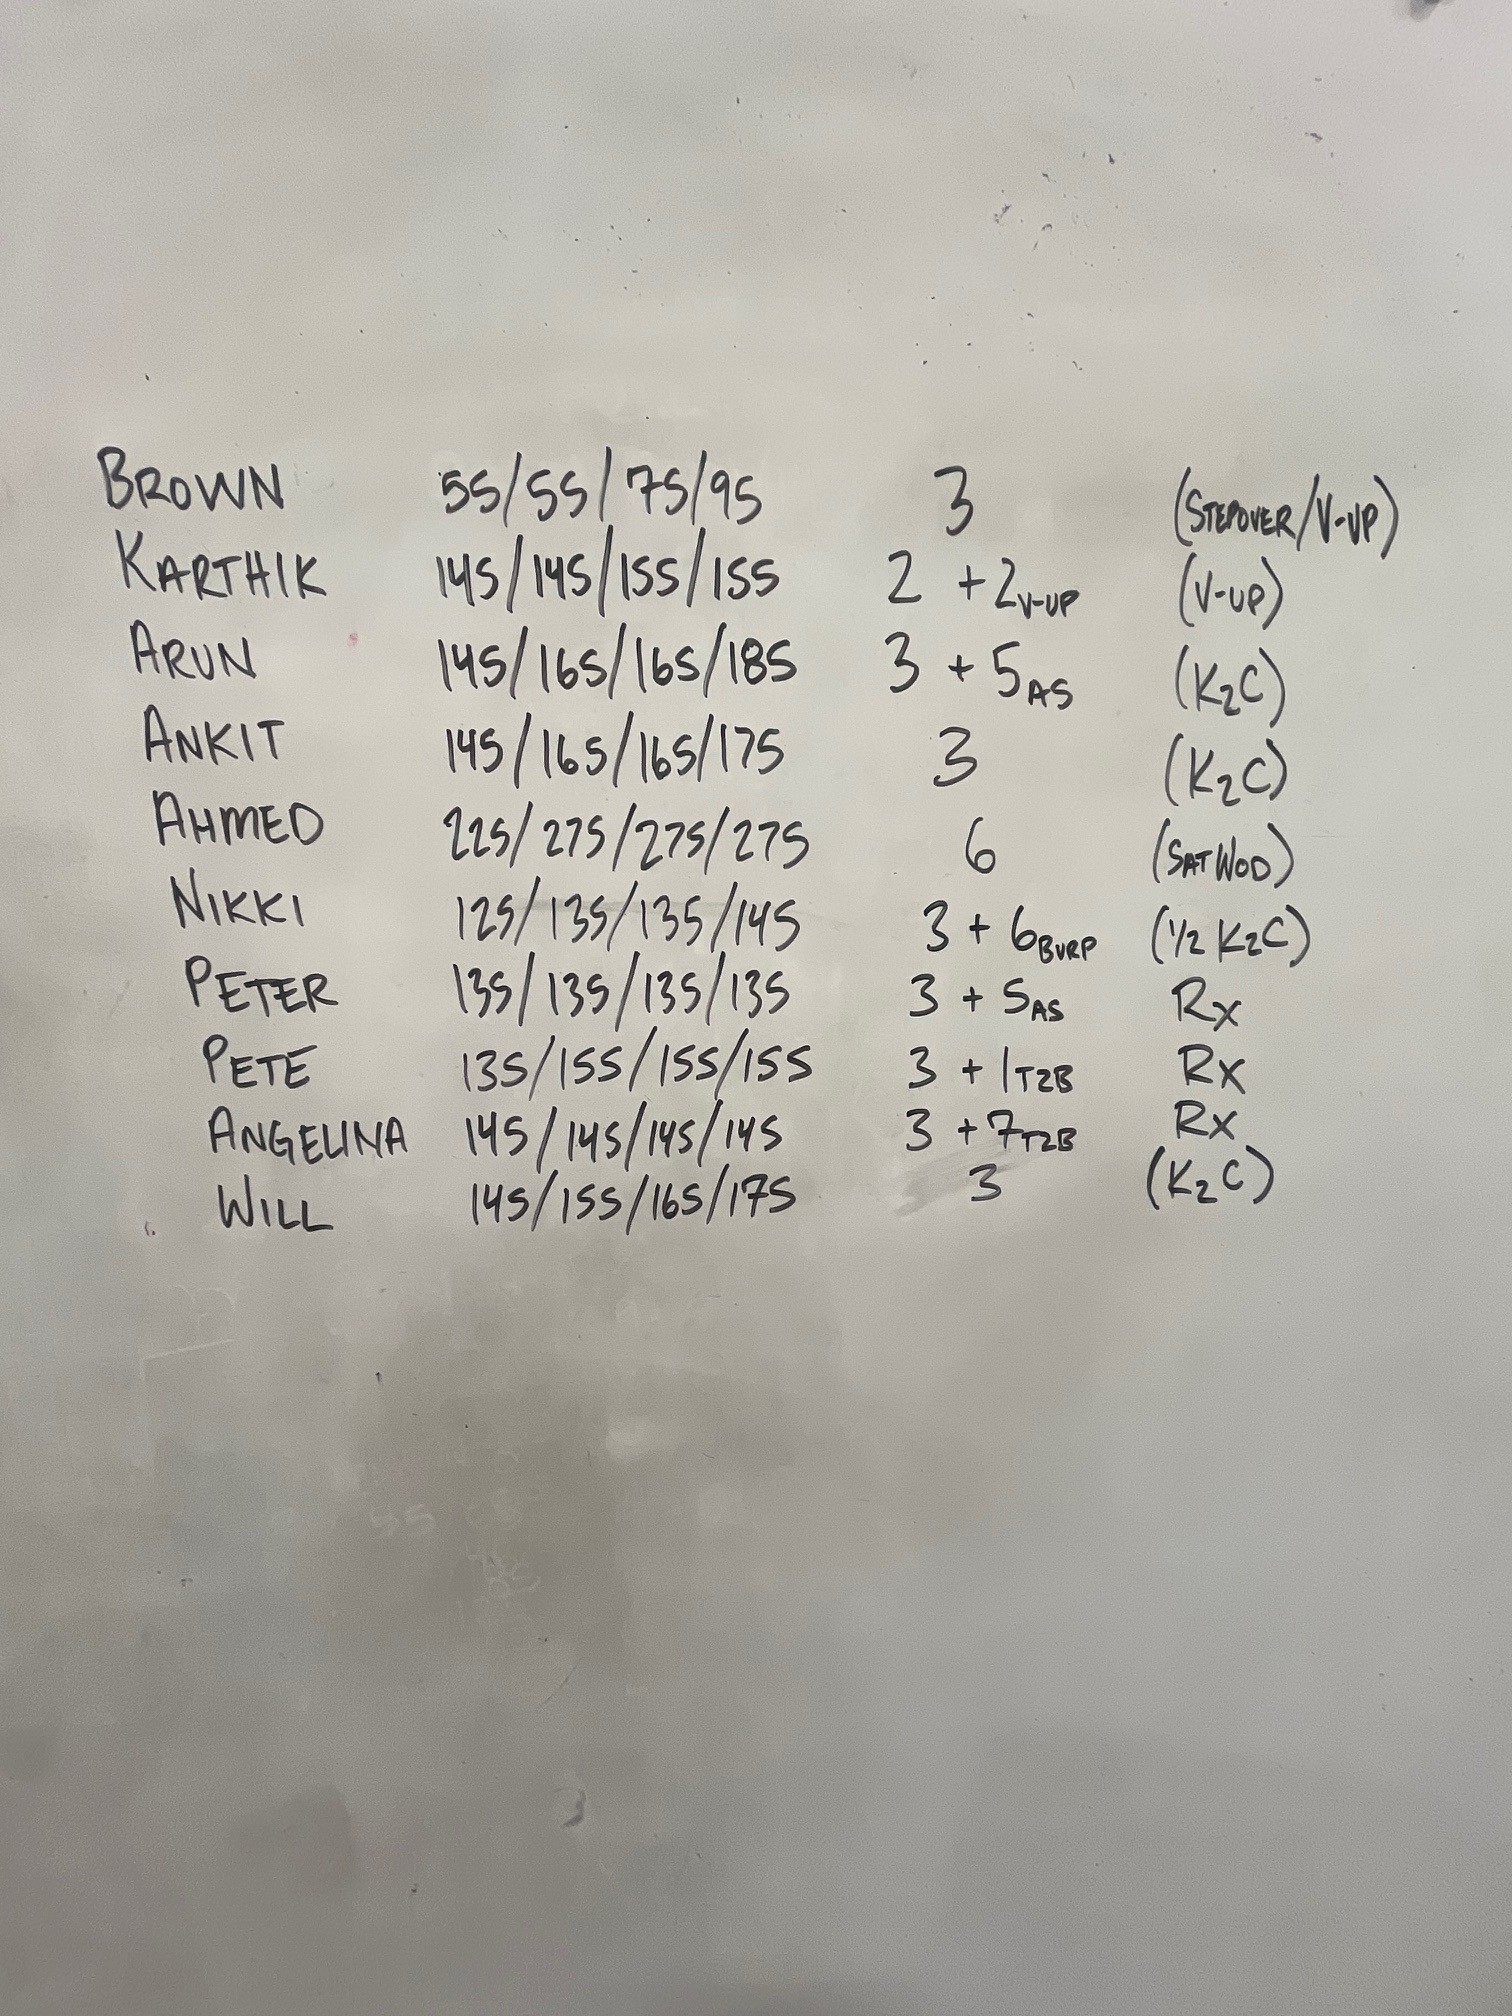 BROWN 55/55/75/95 3 (STEPOVER/V-UP)
KARTHIK 145/145/155/155 2 + 2 V-UP (V-UP)
ARUN 145/165/165/185 3 + 5 AS (K2C)
ANKIT 145/165/165/175 3 (K2C)
AHMED 225/275/275/275 6 (SAT WOD)
NIKKI 125/135/135/145 3 + 6 BURP (1/2 K2C)
PETER 135/135/135/135 3 + 5 AS Rx
PETE 135/155/155/155 3 + 1 T2B Rx
ANGELINA 145/145/145/145 3 + 7 T2B Rx
WILL 145/155/165/175 3 (K2C)